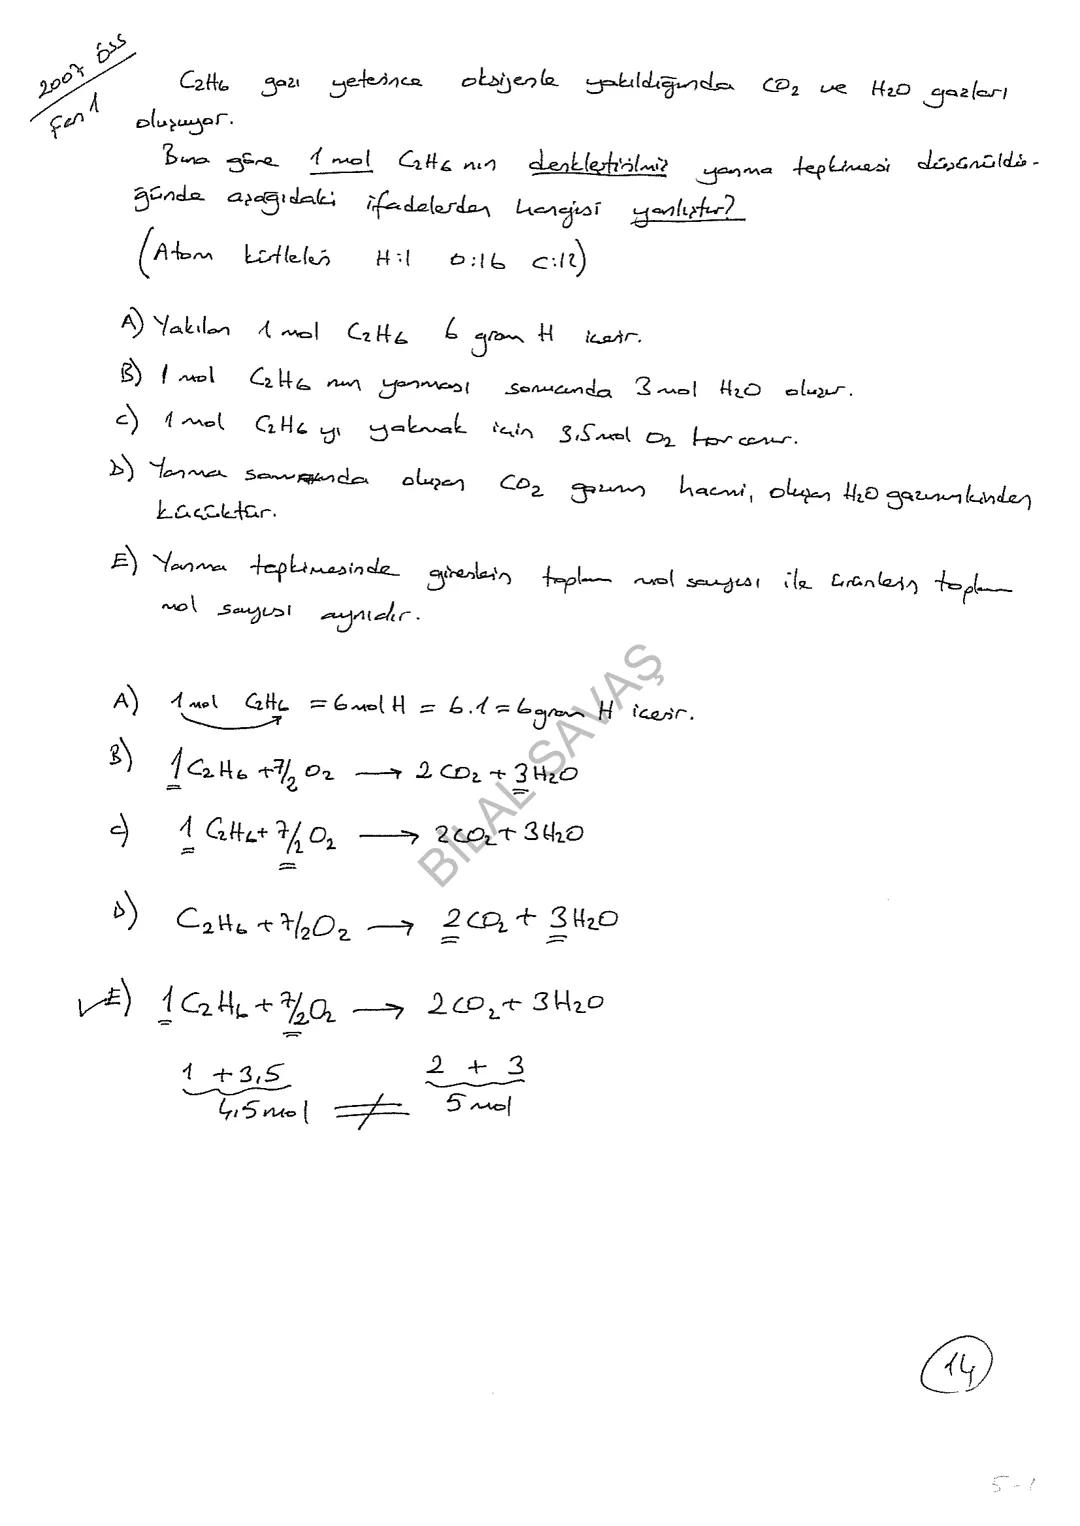 2007 ÖSS
Fen 1
C2H6 gazı yeterince oksijenle yakıldığında CO2 ve H2O gazları
oluşuyor.
Buna göre 1 mol C2H6 nın denkleştirilmiş yanma tepkimesi düşünüldü-
ğünde aşağıdaki ifadelerden hangisi yanlıştır?
(Atom kütleleri H:1 O:16 C:12)
A) Yakılan 1 mol C2H6 6 gram H içerir.
B) 1 mol C2H6 nın yanması sonucunda 3 mol H2O oluşur.
C) 1 mol C2H6 yı yakmak için 3,5 mol O2 harcanır.
D) Yanma sonucunda oluşan CO2 gazının hacmi, oluşan H2O gazınınkinden
küçüktür.
E) Yanma tepkimesinde girenlerin toplam mol sayısı ile ürünlerin toplam
mol sayısı aynıdır.
A) 1 mol C2H6 = 6 mol H = 6.1 = 6 gram H içerir.
B) 1 C2H6 + 7/2 O2 → 2 CO2 + 3 H2O
C) 1 C2H6 + 7/2 O2 → 2 CO2 + 3 H2O
D) C2H6 + 7/2 O2 → 2 CO2 + 3 H2O
✓E) 1 C2H6 + 7/2 O2 → 2 CO2 + 3 H2O
1 + 3,5 2 + 3
4,5 mol ≠ 5 mol
BİLAL SAVAŞ
14
5-1